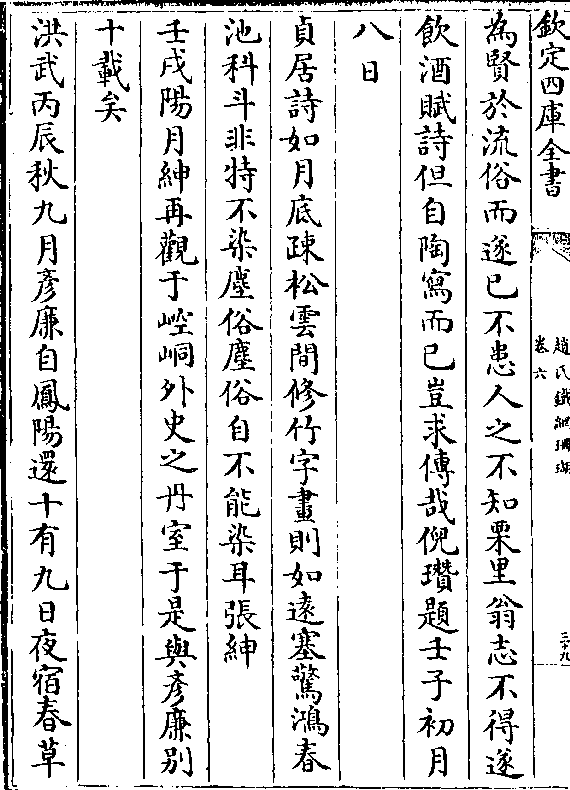 欽定四庫全書
趙氏鐵網珊瑚
卷六
三十九
為賢於流俗而遂已不患人之不知栗里翁志不得遂
飲酒賦詩但自陶寫而已豈求傳哉倪瓚題壬子初月
八日
貞居詩如月底疎松雲間修竹字畫則如遠塞驚鴻春
池科斗非特不染塵俗塵俗自不能染耳張紳
壬戌陽月紳再觀于崆峒外史之丹室于是與彥廉别
十載矣
洪武丙辰秋九月彥廉自鳳陽還十有九日夜宿春草